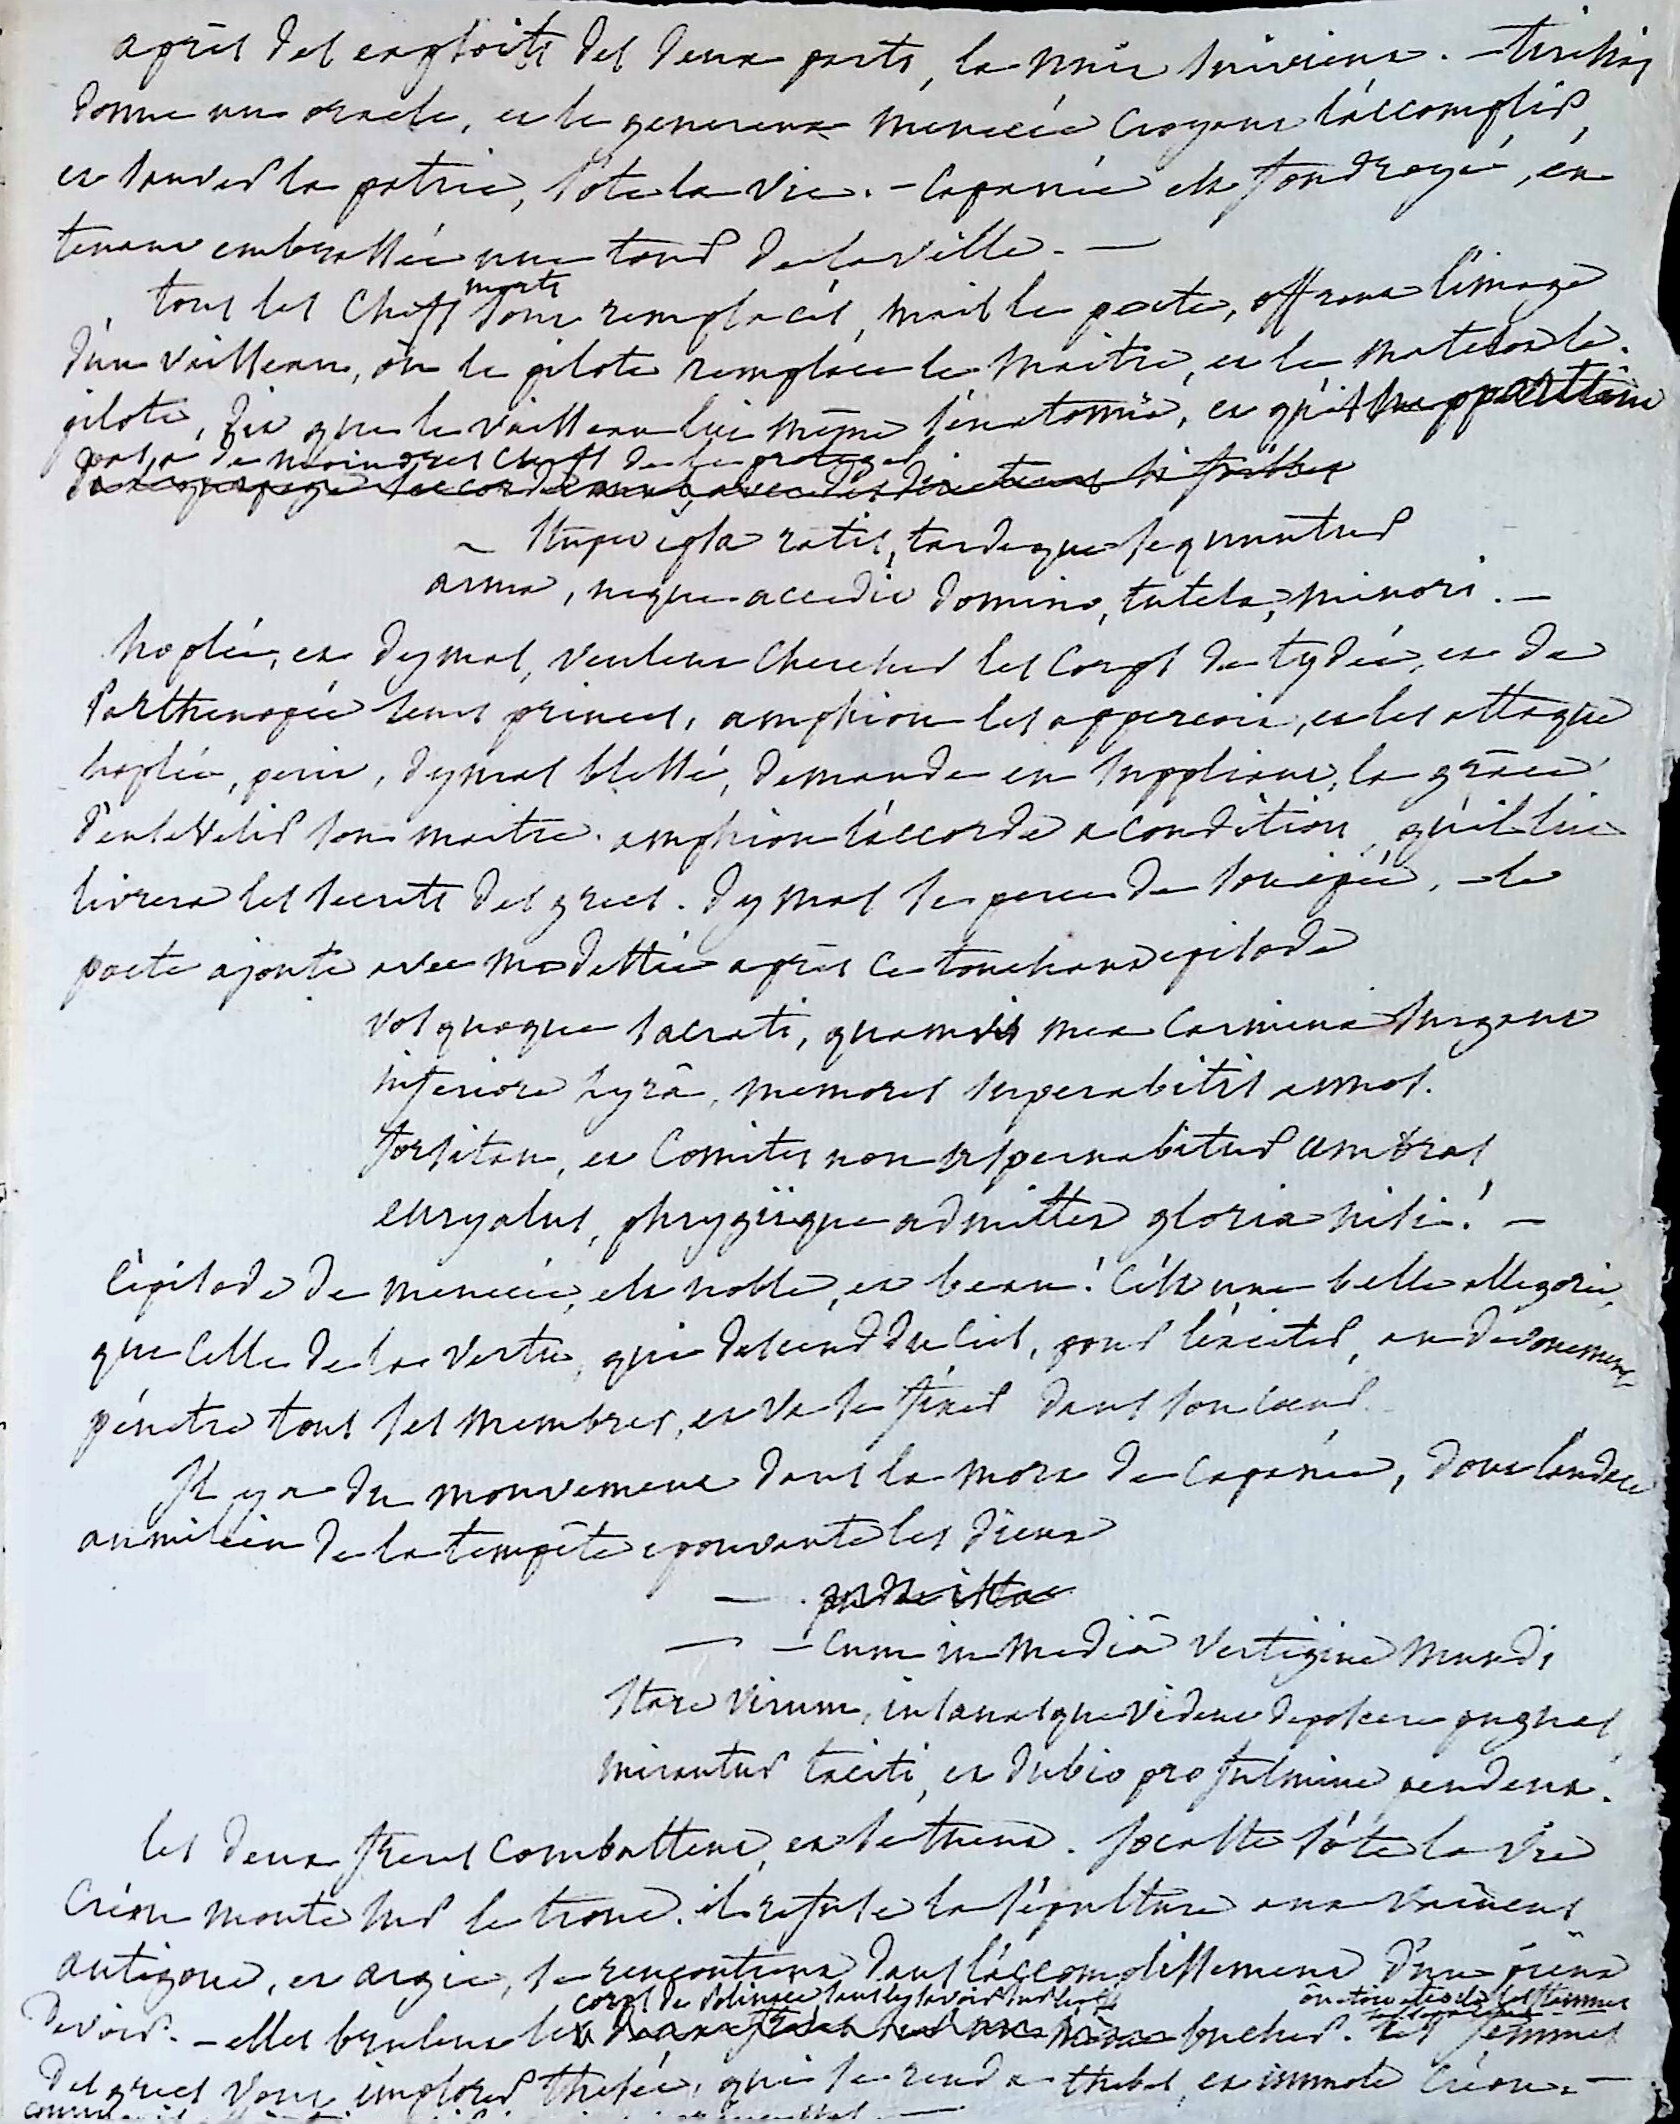 après des exploits des deux parts, la nuit survient. – tirésias
donne un oracle, et le genereux menecée croyant l'accomplir,
et sauver la patrie, s'ote la vie. – capanée est foudroyé, en
tenant embrassée une tour de la ville. —
tous les chefs morts sont remplacés, mais le poete, offrant l'image
d'un vaisseau, où le pilote remplace le maitre, et le matelot le
pilote, dit que le vaisseau lui même s'en etonne, et qu'il
pas a de moindres chefs de le proteger
– stupet ipsa ratis, tardeque sequuntur
arma, neque accedit domino, tutela, minori. –
hoplée, et dymas, veulent chercher les corps de tydée, et de
Parthenopée leurs princes, amphion les apperçoit, et les attaque
hoplée, périt, dymas blessé, demande en suppliant, la grâce
d'ensevelir son maitre. amphion l'accorde a condition, qu'il lui
livrera les secrets des grecs. dymas se perce de son épée, – le
poete ajoute avec modestie après ce touchant episode
vos quoque sacrati, quamvis mea carmina surgant
inferiore lyrâ, memores superabitis annos.
forsitan, et comites non aspernabitur umbras
euryalus, phrygiique admittet gloria nisi! –
l'episode de menecée, est noble, et beau! C'est une belle allegorie,
que celle de la vertu, qui descend du ciel, pour l'exciter, au devouement
pénetre tous ses membres, et va se fixer dans son coeur.
Il y a du mouvement dans la mort de capanée, dont l'audace
au milieu de la tempête epouvante les dieux
— —
— – cum in mediâ vertigine mundi
stare virum, insanasque vident deposcere pugnas
mirantur taciti, et dubio pro fulmine pendent.
les deux freres combattent, et se tuent. Jocaste s'ôte la vie
Créon monte sur le trone. il refuse la sépulture aux vaincus
antigone, et argie, se rencontrent dans l'accomplissement d'un pieux
corps de Polinice sans le savoir sur le
devoir. – elles brulent le bucher. les femmes
des grecs vont implorer thesée, qui se rend a thebes, et immole Créon. –